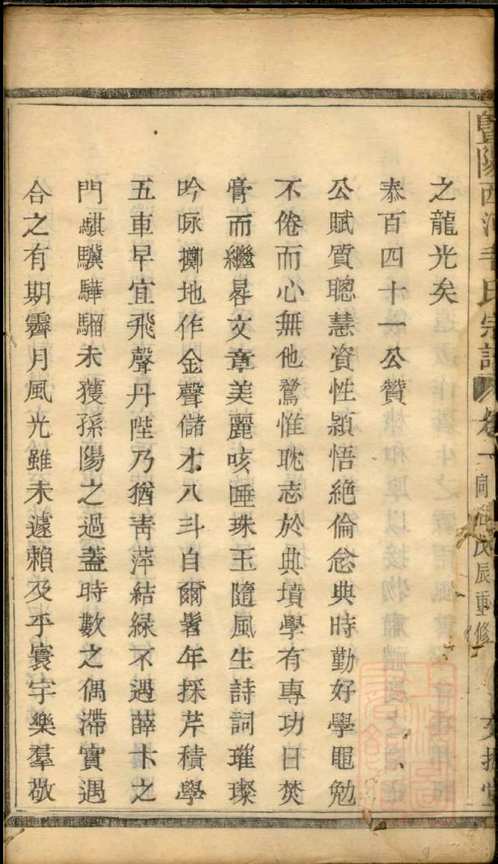 暨陽西河毛氏宗譜
之龍光矣
泰百四十一公贊
公賦質聰慧資性穎悟絕倫念典時勤好學黽勉
不倦而心無他騖惟耽志於典墳學有專功日焚
膏而繼晷文章美麗咳唾珠玉隨風生詩詞璀璨
吟咏擲地作金聲儲才八斗自爾髫年採芹積學
五車早宜飛聲丹陛乃猶靑萍結綠不遇薛卞之
門騏驥驊騮未獲孫陽之過蓋時數之偶滯實遇
合之有期霽月風光雖未遽賴及乎寰宇樂羣敬